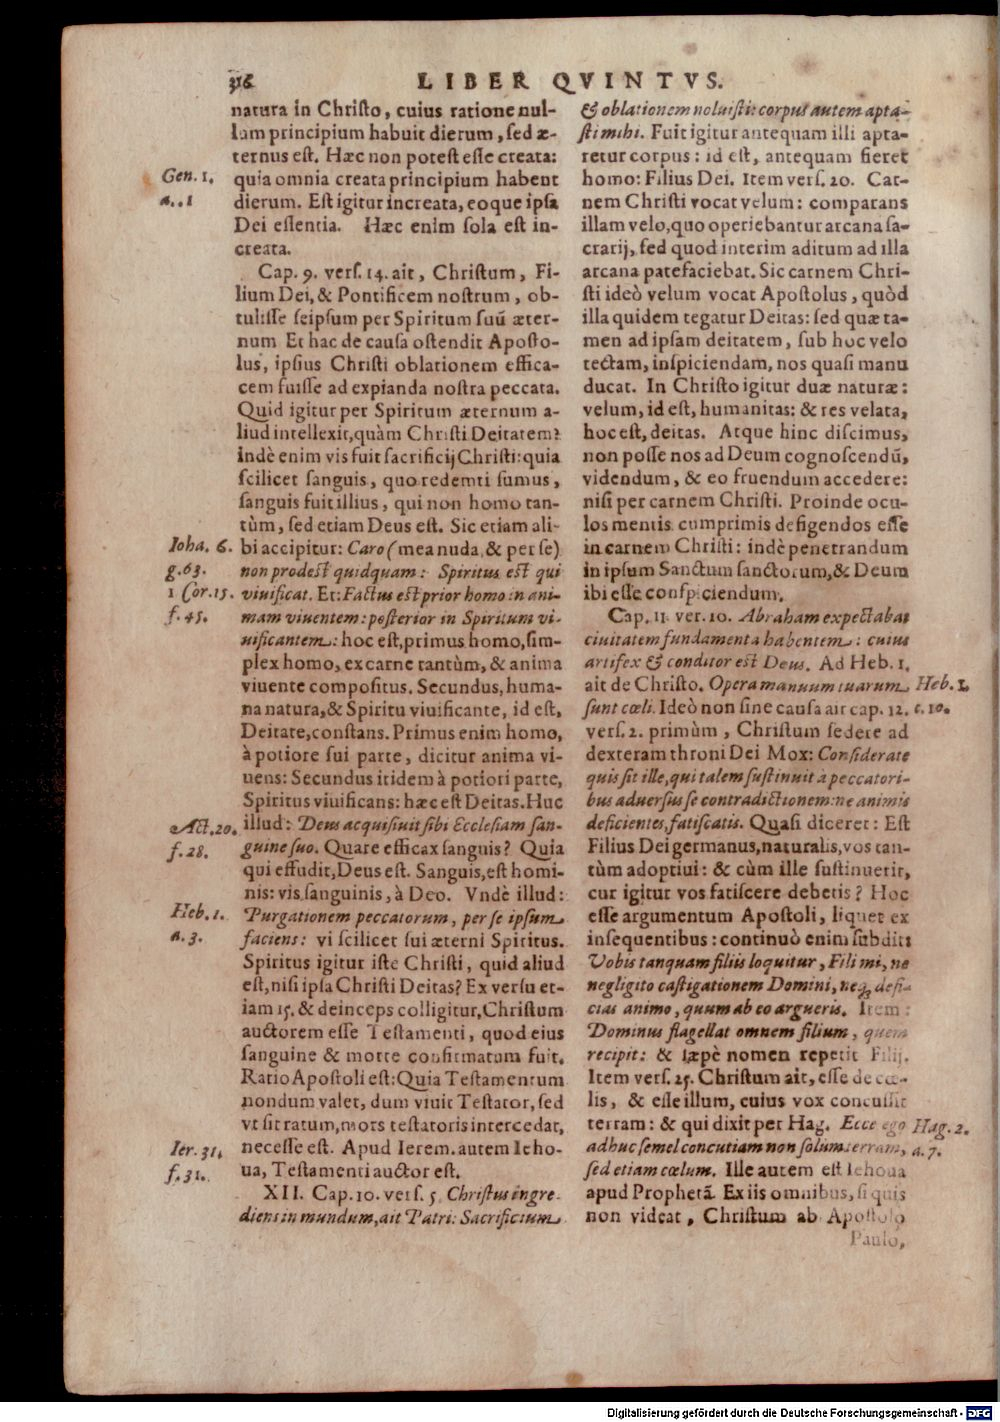 316 LIBER QVINTVS.
natura in Christo, cuius ratione nul-
lum principium habuit dierum, sed æ-
ternus est. Hæc non potest esse creata:
quia omnia creata principium habent
dierum. Est igitur increata, eoque ipsa
Dei essentia. Hæc enim sola est in-
creata.
Gen. 1.
a. 1
Cap. 9. vers. 14. ait, Christum, Fi-
lium Dei, & Pontificem nostrum, ob-
tulisse seipsum per Spiritum suū æter-
num Et hac de causa ostendit Aposto-
lus, ipsius Christi oblationem effica-
cem fuisse ad expianda nostra peccata.
Quid igitur per Spiritum æternum a-
liud intellexit, quàm Christi Deitatem?
indè enim vis fuit sacrificij Christi: quia
scilicet sanguis, quo redemti sumus,
sanguis fuit illius, qui non homo tan-
tùm, sed etiam Deus est. Sic etiam ali-
bi accipitur: Caro (mea nuda & per se)
non prodest quidquam: Spiritus est qui
viuificat. Et: Factus est prior homo in ani-
mam viuentem: posterior in Spiritum vi-
uificantem: hoc est, primus homo, sim-
plex homo, ex carne tantùm, & anima
viuente compositus. Secundus, huma-
na natura, & Spiritu viuificante, id est,
Deitate, constans. Primus enim homo,
à potiore sui parte, dicitur anima vi-
uens: Secundus itidem à potiori parte,
Spiritus viuificans: hæc est Deitas. Huc
illud: Deus acquisiuit sibi Ecclesiam san-
guine suo. Quare efficax sanguis? Quia
qui effudit, Deus est. Sanguis, est homi-
nis: vis sanguinis, à Deo. Vndè illud:
Purgationem peccatorum, per se ipsum
faciens: vi scilicet sui æterni Spiritus.
Spiritus igitur iste Christi, quid aliud
est, nisi ipsa Christi Deitas? Ex versu et-
iam 15. & deinceps colligitur, Christum
auctorem esse Testamenti, quod eius
sanguine & morte confirmatum fuit.
Ratio Apostoli est: Quia Testamentum
nondum valet, dum viuit Testator, sed
vt sit ratum, mors testatoris intercedat,
necesse est. Apud Ierem. autem Ieho-
ua, Testamenti auctor est.
Ioha. 6.
g. 63.
1 Cor. 15.
f. 45.
Act. 20.
f. 28.
Heb. 1.
a. 3.
Ier. 31.
f. 31.
XII. Cap. 10. vers. 5. Christus ingre-
diens in mundum, ait Patri: Sacrificium
& oblationem noluisti: corpus autem apta-
sti mihi. Fuit igitur antequam illi apta-
retur corpus: id est, antequam fieret
homo: Filius Dei. Item vers. 20. Car-
nem Christi vocat velum: comparans
illam velo, quo operiebantur arcana sa-
crarij, sed quod interim aditum ad illa
arcana patefaciebat. Sic carnem Chri-
sti ideò velum vocat Apostolus, quòd
illa quidem tegatur Deitas: sed quæ ta-
men ad ipsam deitatem, sub hoc velo
tectam, inspiciendam, nos quasi manu
ducat. In Christo igitur duæ naturæ:
velum, id est, humanitas: & res velata,
hoc est, deitas. Atque hinc discimus,
non posse nos ad Deum cognoscendū,
videndum, & eo fruendum accedere:
nisi per carnem Christi. Proinde ocu-
los mentis cumprimis defigendos esse
in carnem Christi: indè penetrandum
in ipsum Sanctum sanctorum, & Deum
ibi esse conspiciendum.
Cap. 11. ver. 10. Abraham expectabat
ciuitatem fundamenta habentem: cuius
artifex & conditor est Deus. Ad Heb. 1.
ait de Christo. Opera manuum tuarum
sunt cœli. Ideò non sine causa ait cap. 12.
vers. 2. primùm, Christum sedere ad
dexteram throni Dei Mox: Considerate
quis sit ille, qui talem sustinuit à peccatori-
bus aduersus se contradictionem: ne animis
deficientes, fatiscatis. Quasi diceret: Est
Filius Dei germanus, naturalis, vos tan-
tùm adoptiui: & cùm ille sustinuerit,
cur igitur vos fatiscere debetis? Hoc
esse argumentum Apostoli, liquet ex
insequentibus: continuò enim subdit:
Vobis tanquam filiis loquitur, Fili mi, ne
negligito castigationem Domini, neq; defi-
cias animo, quum ab eo argueris. Item:
Dominus flagellat omnem filium, quem
recipit: & sæpè nomen repetit Filij.
Item vers. 25. Christum ait, esse de cœ-
lis, & esse illum, cuius vox concussit
terram: & qui dixit per Hag. Ecce ego
adhuc semel concutiam non solùm terram,
sed etiam cœlum. Ille autem est Iehoua
apud Prophetā. Ex iis omnibus, si quis
non videat, Christum ab Apostolo
Heb. 1.
c. 10.
Hag. 2.
a. 7.
Paulo,
Digitalisierung gefördert durch die Deutsche Forschungsgemeinschaft - DFG